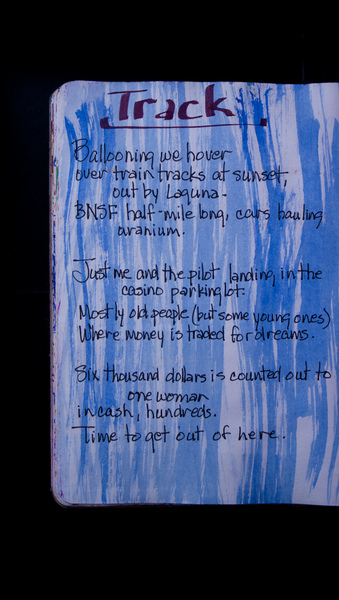 Track
Ballooning we hover
over train tracks at sunset,
out by Laguna-
BNSF half-mile long, cars hauling
uranium.
Just me and the pilot landing in the
casino parking lot.
Mostly old people (but some young ones)
Where money is traded for dreams.
Six thousand dollars is counted out to
one woman
in cash, hundreds.
Time to get out of here.